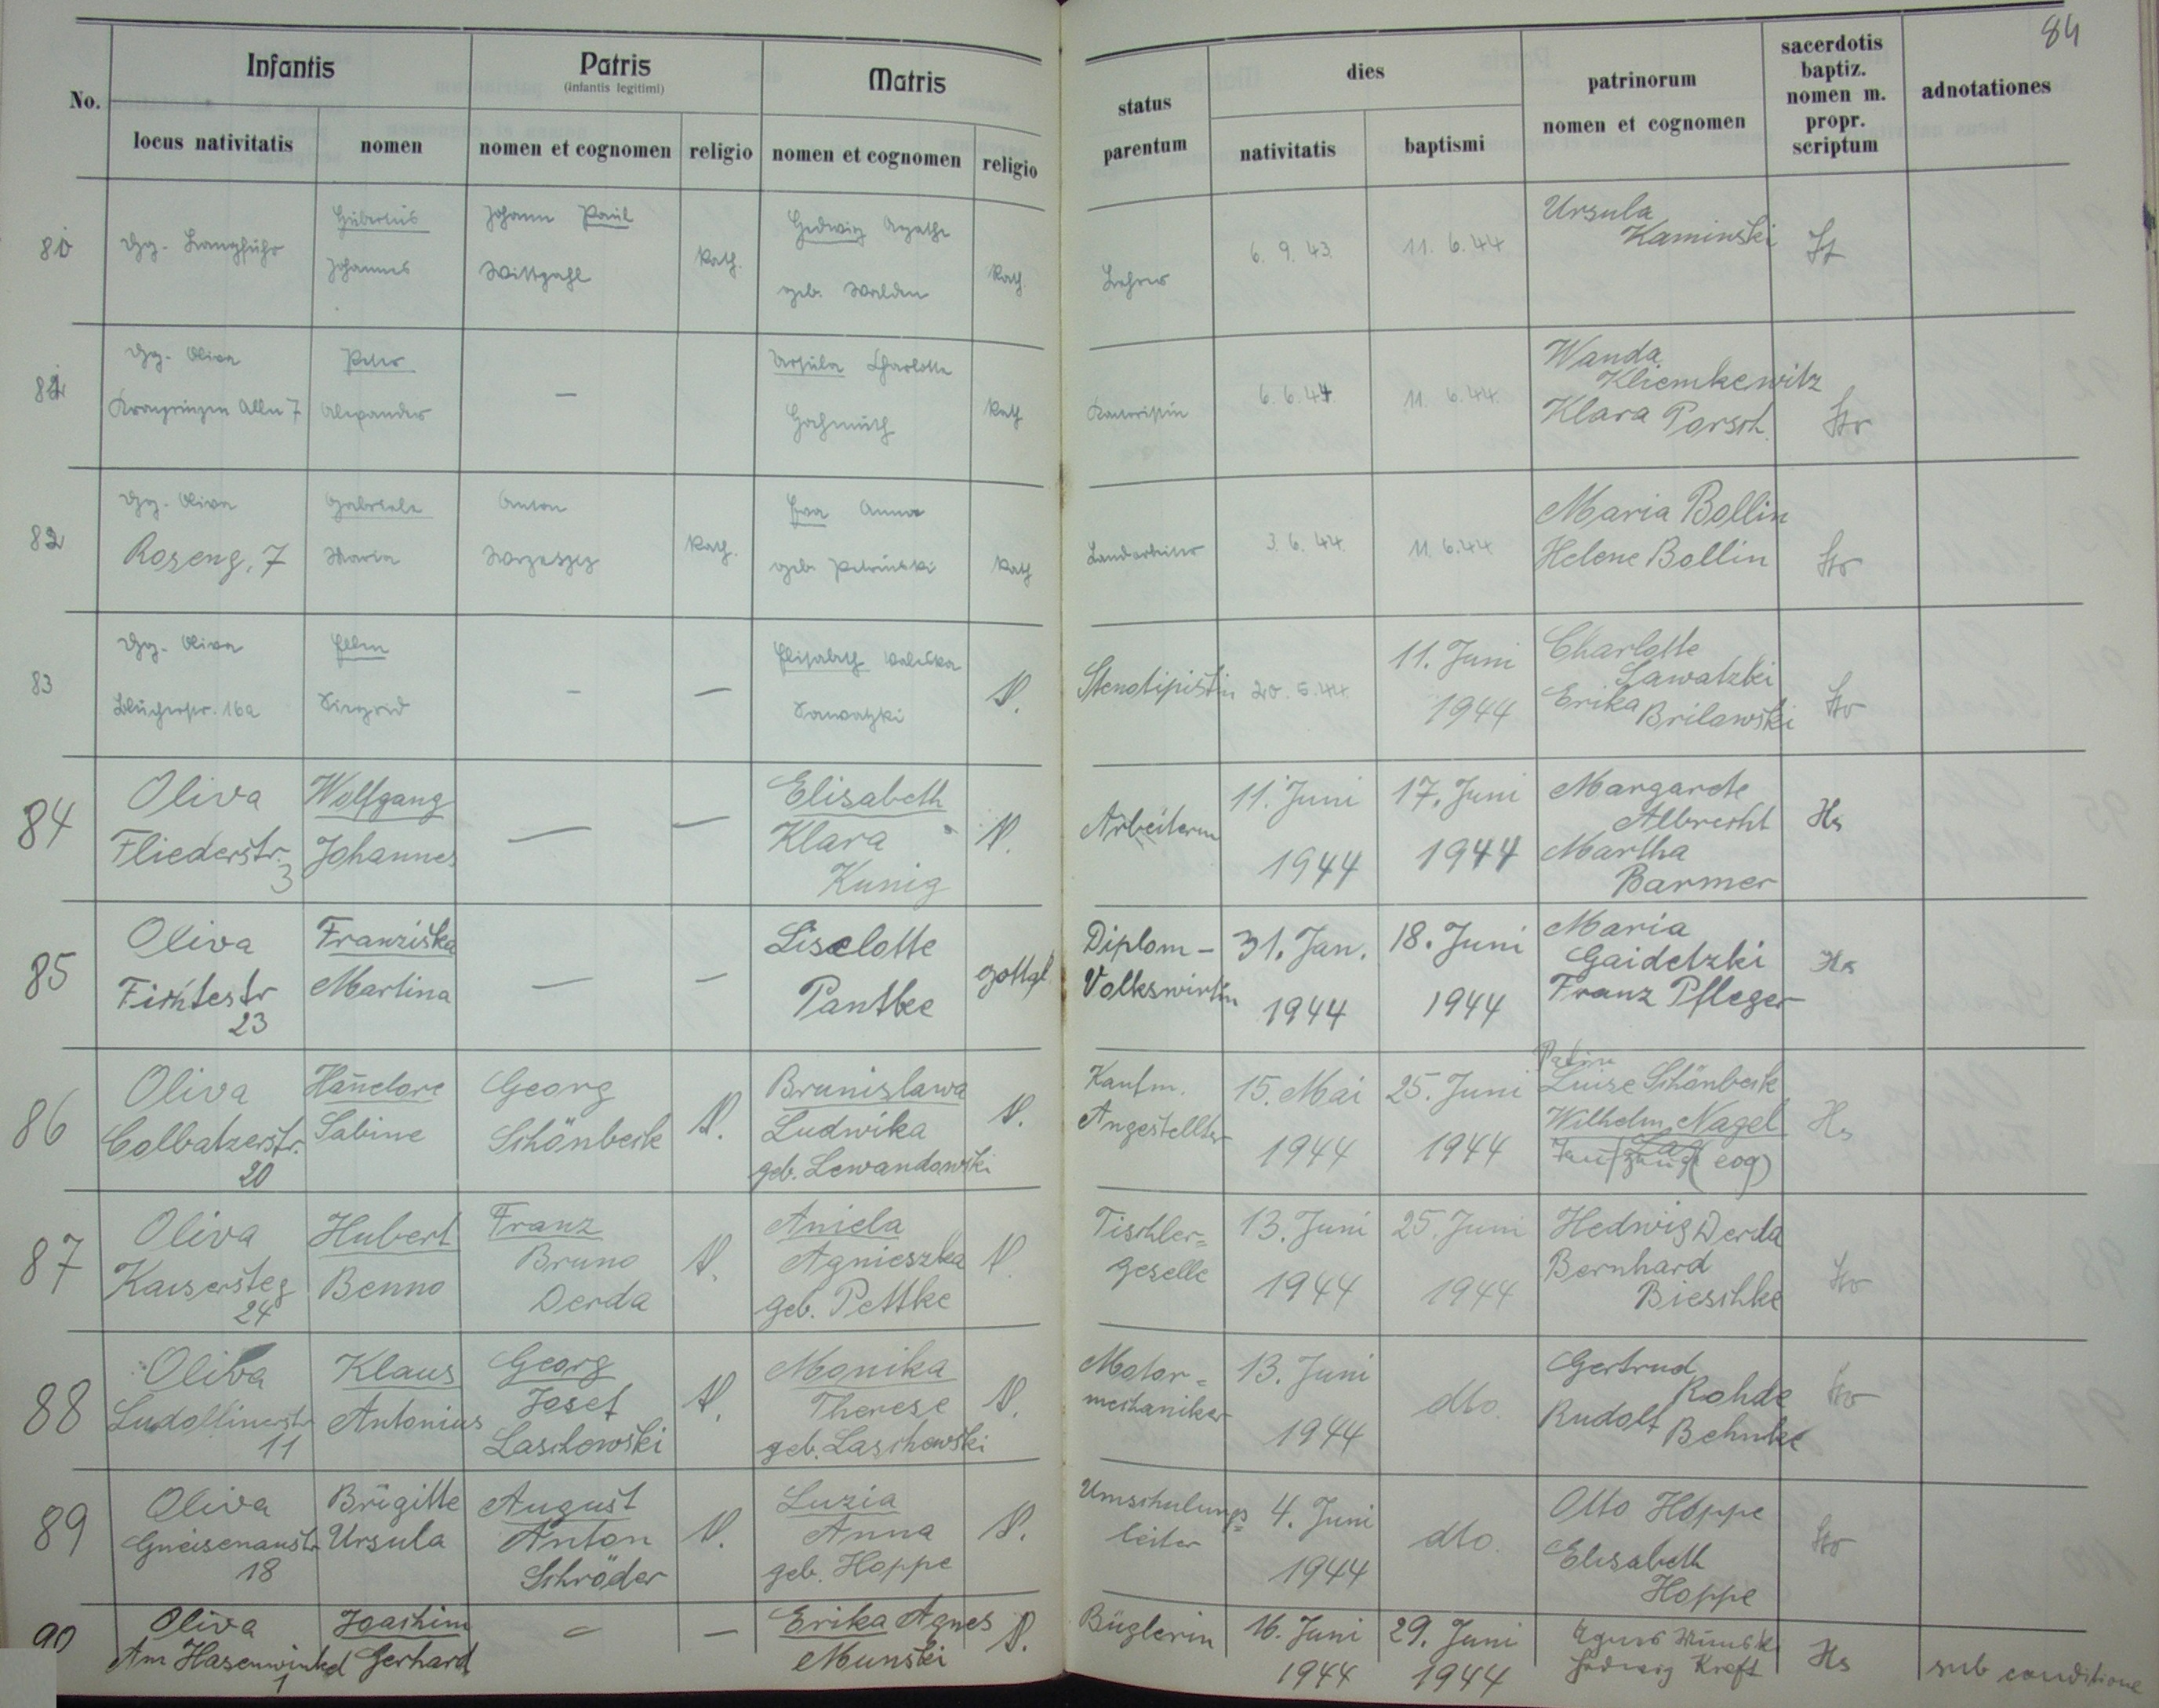 84
No.
Infantis
Patris
(infantis legitimi)
Matris
locus nativitatis
nomen
nomen et cognomen
religio
nomen et cognomen
religio
status
parentum
dies
nativitatis
baptismi
patrinorum
nomen et cognomen
sacerdotis
baptiz.
nomen m.
propr.
scriptum
adnotationes
80
Dzg. Langfuhr
Hubertus
Johannes
Johann Paul
kath.
Hedwig Agathe
geb. Walden
kath
Lehrer
6. 9. 43.
11. 6. 44
Ursula
Kaminski
St
81
Dzg. Oliva
Kronprinzen Allee 7
Peter
Alexander
—
Ursula Charlotte
Hochmuth
kath
Kontoristin
6. 6. 44.
11. 6. 44.
Wanda
Kliemkewitz
Klara Porsch.
Str
82
Dzg. Oliva
Roseng. 7
Gabriele
Maria
Anton
kath.
Eva Anna
kath
Landarbeiter
3. 6. 44.
11. 6. 44
Maria Bollin
Helene Bollin
Str
83
Dzg. Oliva
Blücherstr. 16a
Ellen
Siegrid
—
—
Elisabeth Valeska
Sawatzki
Stenotipistin
20. 5. 44.
11. Juni
1944
Charlotte
Sawatzki
Erika
Brilawski
Str
84
Oliva
Fliederstr.
3
Wolfgang
Johannes
—
—
Elisabeth
Klara
Kunig
Arbeiterin
11. Juni
1944
17. Juni
1944
Margarete
Albrecht
Martha
Barmer
Hs
85
Oliva
Fichtestr
23
Franziska
Martina
—
—
Liselotte
Pantke
gottgl.
Diplom-
Volkswirtin
31. Jan.
1944
18. Juni
1944
Maria
Gaidetzki
Franz Pfleger
Hs
86
Oliva
Colbatzerstr.
20
Hanelore
Sabine
Georg
Schönbeck
Bronislawa
Ludwika
geb. Lewandowski
Kaufm.
Angestellter
15. Mai
1944
25. Juni
1944
Patin
Luise Schönbeck
Wilhelm Nagel
Hs
87
Oliva
Kaisersteg
24
Hubert
Benno
Franz
Bruno
Derda
Aniela
Agnieszka
geb. Pettke
Tischler=
geselle
13. Juni
1944
25. Juni
1944
Hedwig Derda
Bernhard
Bieschke
Str
88
Oliva
Ludolfinerstr
11
Klaus
Antonius
Georg
Josef
Laschowski
Monika
Therese
geb. Laschewski
Motor=
mechaniker
13. Juni
1944
dto.
Gertrud
Rohde
Rudolf Behnke
Str
89
Oliva
Gneisenaustr
18
Brigitte
Ursula
August
Anton
Schröder
Luzia
Anna
geb. Hoppe
Umschulungs=
leiter
4. Juni
1944
dto.
Otto Hoppe
Elisabeth
Hoppe
Str
90
Oliva
Am Hasenwinkel
1
Joachim
Gerhard
—
—
Erika Agnes
Munski
Büglerin
16. Juni
1944
29. Juni
1944
Agnes Munski
Hedwig Kreft
Hs
sub conditione